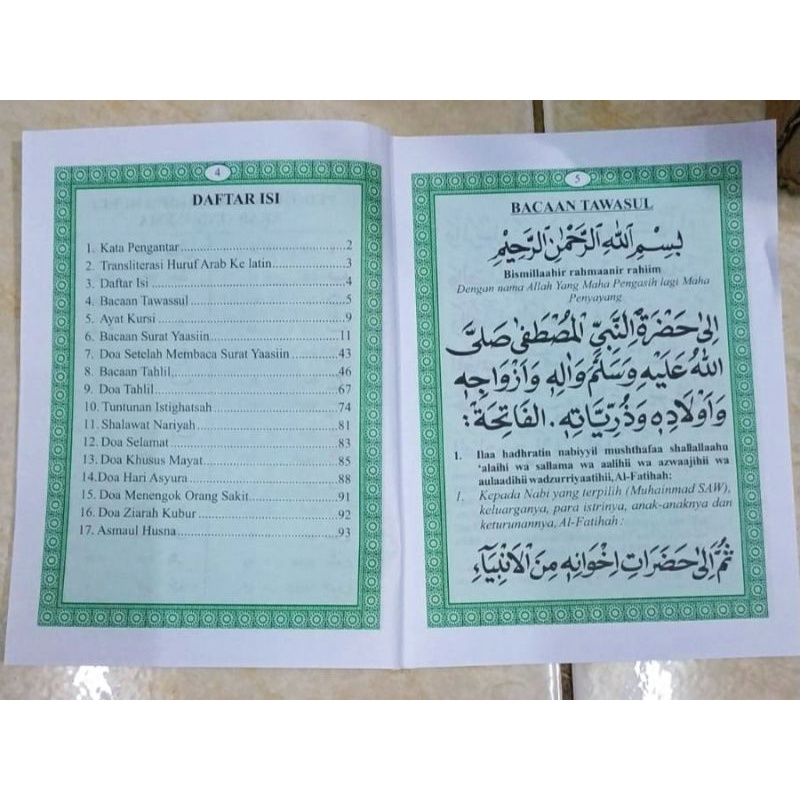 4
DAFTAR ISI
1. Kata Pengantar....................................2
2. Transliterasi Huruf Arab Ke latin..................3
3. Daftar Isi.........................................4
4. Bacaan Tawassul....................................5
5. Ayat Kursi.........................................9
6. Bacaan Surat Yaasiin...............................11
7. Doa Setelah Membaca Surat Yaasiin..................43
8. Bacaan Tahlil......................................46
9. Doa Tahlil.........................................67
10. Tuntunan Istighatsah..............................74
11. Shalawat Nariyah..................................81
12. Doa Selamat.......................................83
13. Doa Khusus Mayat..................................85
14. Doa Hari Asyura...................................88
15. Doa Menengok Orang Sakit..........................91
16. Doa Ziarah Kubur..................................92
17. Asmaul Husna......................................93
5
BACAAN TAWASUL
بِسْمِ اللهِ الرَّحْمٰنِ الرَّحِيْمِ
Bismillaahir rahmaanir rahiim
Dengan nama Allah Yang Maha Pengasih lagi Maha
Penyayang
اِلىٰ حَضْرَةِ النَّبِيِّ الْمُصْطَفٰى صَلَّى
اللهُ عَلَيْهِ وَسَلَّمَ وَاٰلِهٖ وَاَزْوَاجِهٖ
وَاَوْلَادِهٖ وَذُرِّيَّاتِهٖ . الفَاتِحَةْ :
1. Ilaa hadhratin nabiyyil mushthafaa shallallaahu
‘alaihi wa sallama wa aalihii wa azwaajihii wa
aulaadihii wadzurriyaatihii, Al-Fatihah:
1. Kepada Nabi yang terpilih (Muhainmad SAW),
keluarganya, para istrinya, anak-anaknya dan
keturunannya, Al-Fatihah :
ثُمَّ اِلىٰ حَضَرَاتِ اِخْوَانِهٖ مِنَ الْاَنْبِيَآءِ